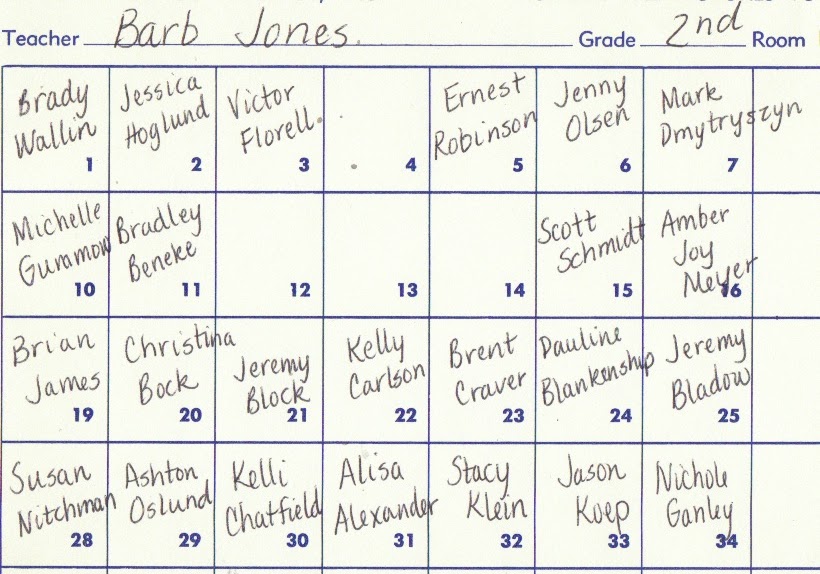 Teacher Barb Jones. Grade 2nd Room
Brady
Wallin
1
Jessica
Hoglund
2
Victor
Florell.
3
4
Ernest
Robinson
5
Jenny
Olsen
6
Mark
Dmytryszyn
7
Michelle
Guramow
10
Bradley
Beneke
11
12
13
14
Scott
Schmidt
15
Amber
Joy
Meyer
16
Brian
James
19
Christina
Bock
20
Jeremy
Block
21
Kelly
Carlson
22
Brent
Craver
23
Pauline
Blankenship
24
Jeremy
Bladow
25
Susan
Nitchman
28
Ashton
Oslund
29
Kelli
Chatfield
30
Alisa
Alexander
31
Stacy
Klein
32
Jason
Koep
33
Nichole
Ganley
34